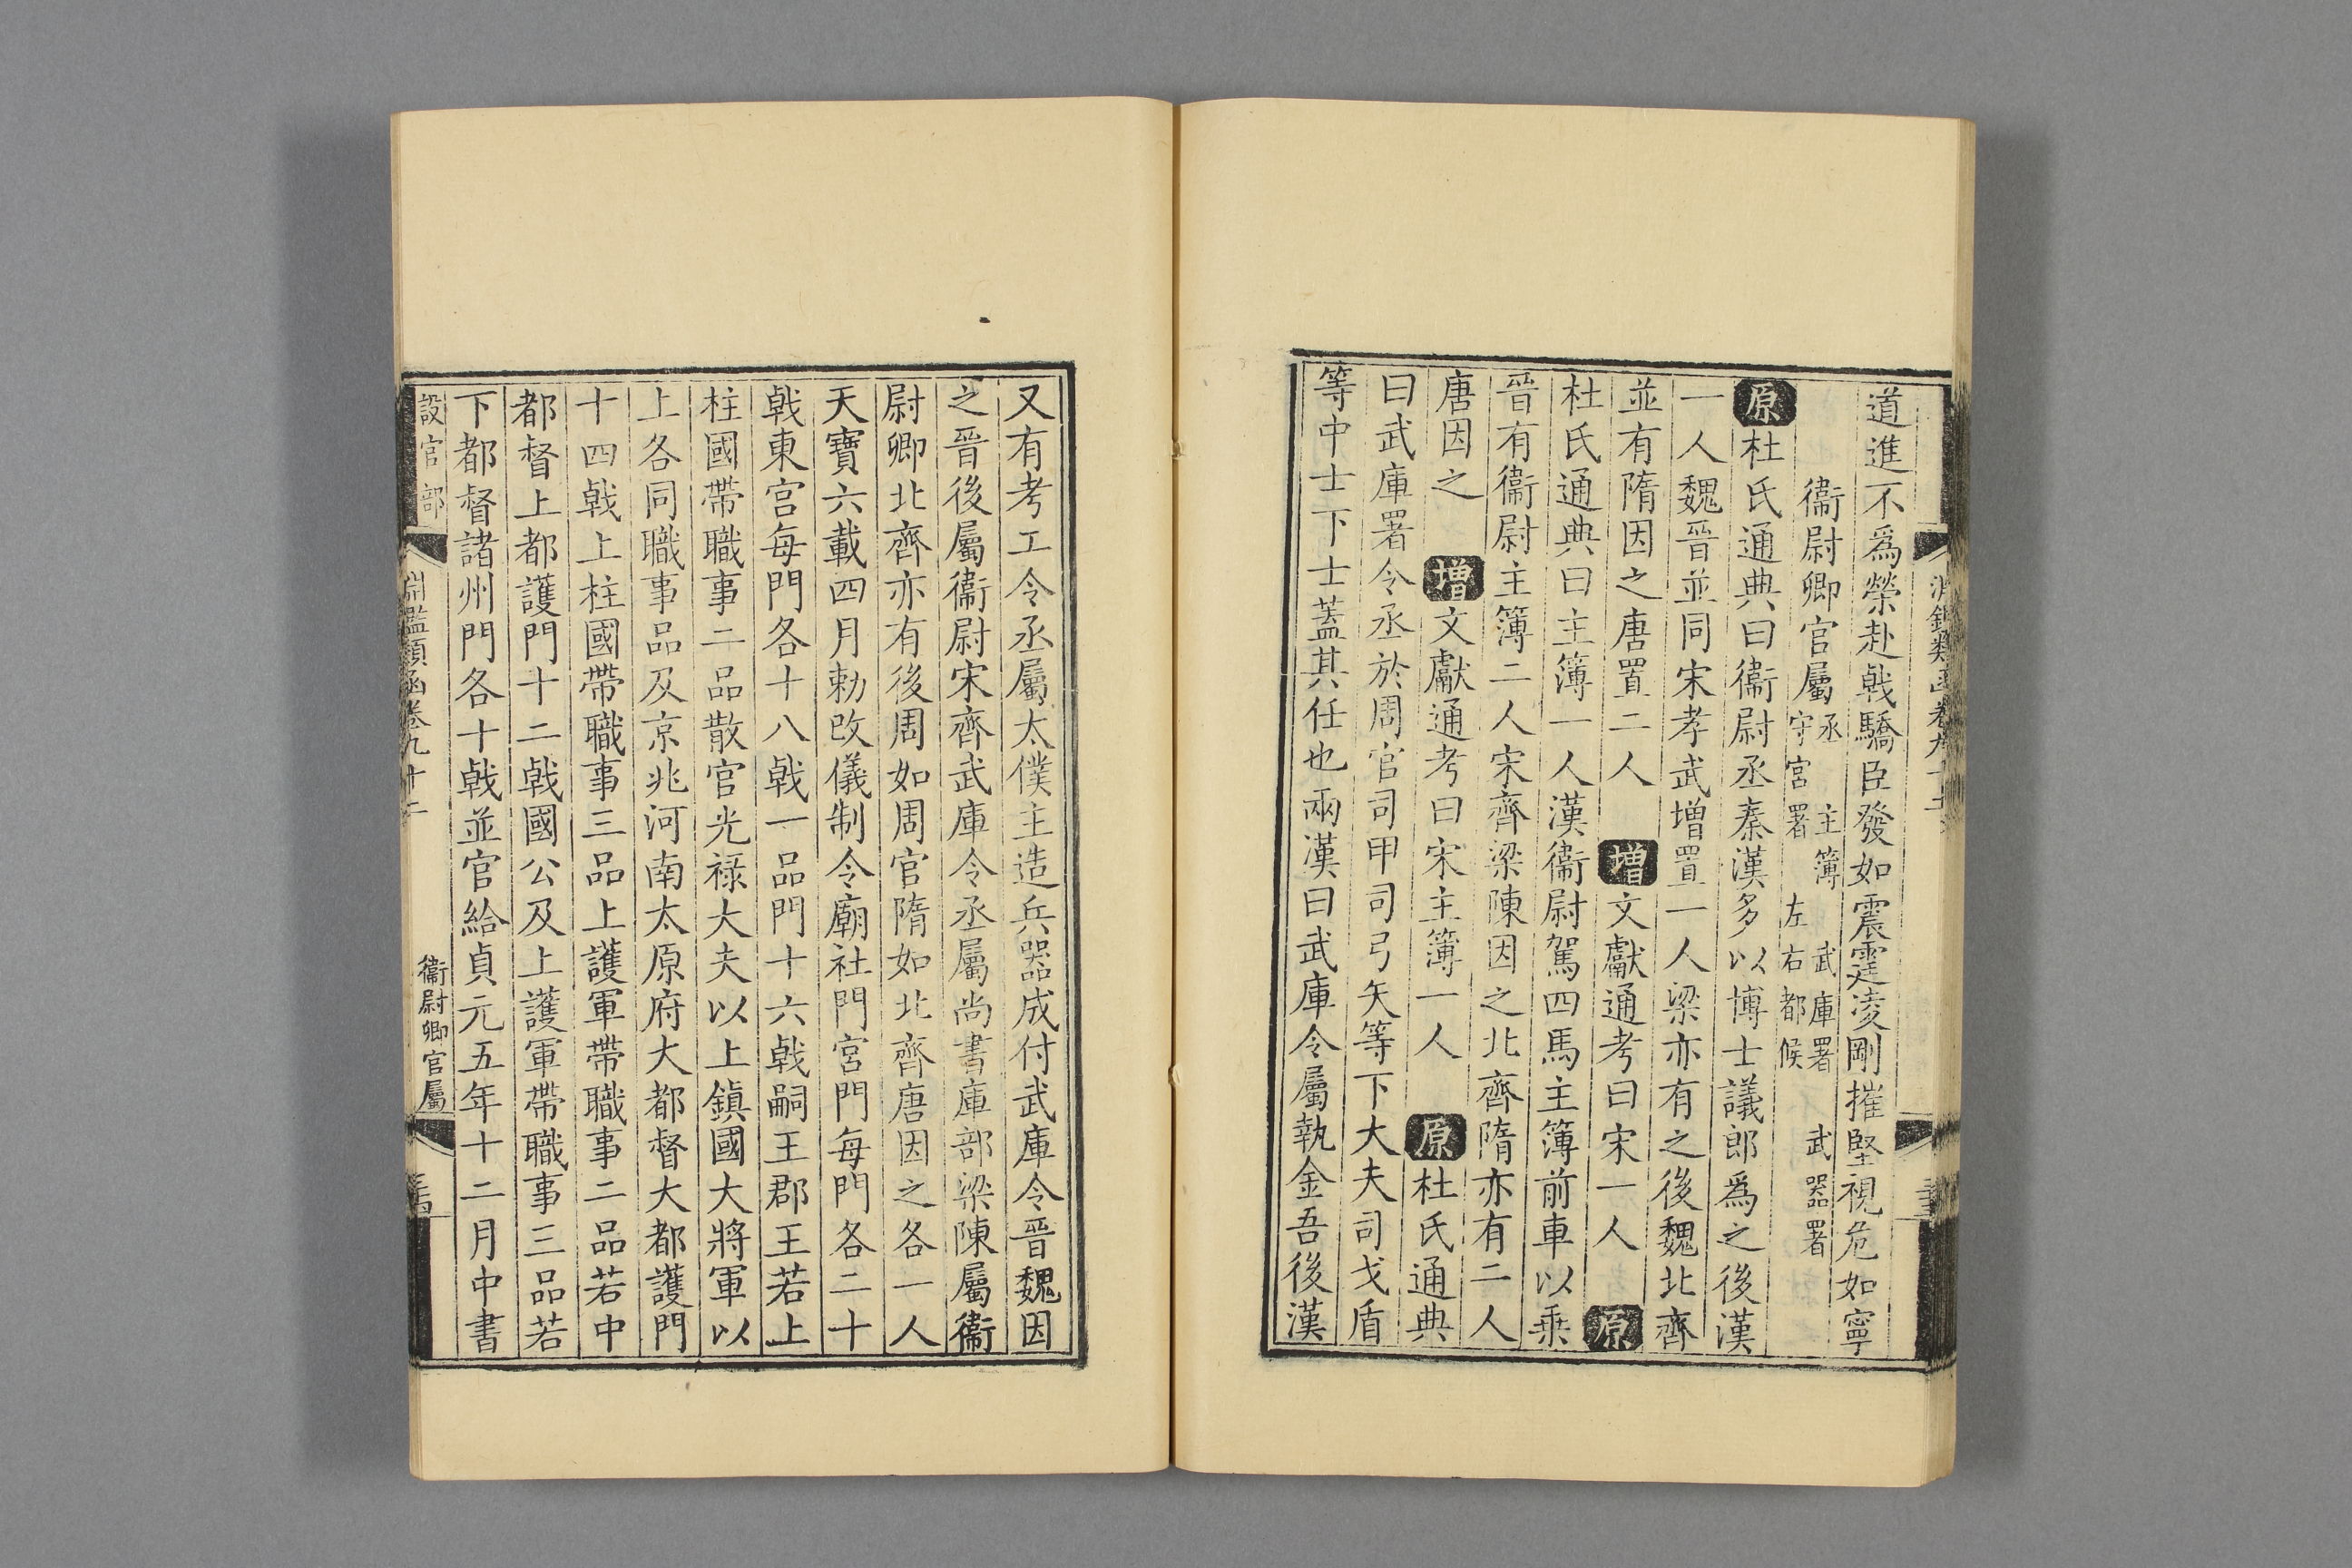 道進不爲榮赴戟驕臣發如震霆凌剛摧堅視危如寧
衞尉卿官屬丞 主簿 武庫署 武器署 守宮署 左右都候
原杜氏通典曰衞尉丞秦漢多以博士議郎爲之後漢
一人魏晉並同宋孝武增置一人梁亦有之後魏北齊
並有隋因之唐置二人 增文獻通考曰宋一人 原
杜氏通典曰主簿一人漢衞尉駕四馬主簿前車以乗
晉有衞尉主簿二人宋齊梁陳因之北齊隋亦有二人
唐因之 增文獻通考曰宋主簿一人 原杜氏通典
曰武庫署令丞於周官司甲司弓矢等下大夫司戈盾
等中士下士蓋其任也兩漢曰武庫令屬執金吾後漢
又有考工令丞屬太僕主造兵器成付武庫令晉魏因
之晉後屬衞尉宋齊武庫令丞屬尚書庫部梁陳屬衞
尉卿北齊亦有後周如周官隋如北齊唐因之各一人
天寶六載四月勅改儀制令廟社門宮門每門各二十
戟東宮每門各十八戟一品門十六戟嗣王郡王若上
柱國帶職事二品散官光祿大夫以上鎭國大將軍以
上各同職事品及京兆河南太原府大都督大都護門
十四戟上柱國帶職事三品上護軍帶職事二品若中
都督上都護門十二戟國公及上護軍帶職事三品若
下都督諸州門各十戟並官給貞元五年十二月中書
設官部 淵鑑類函卷九十二 衞尉卿官屬